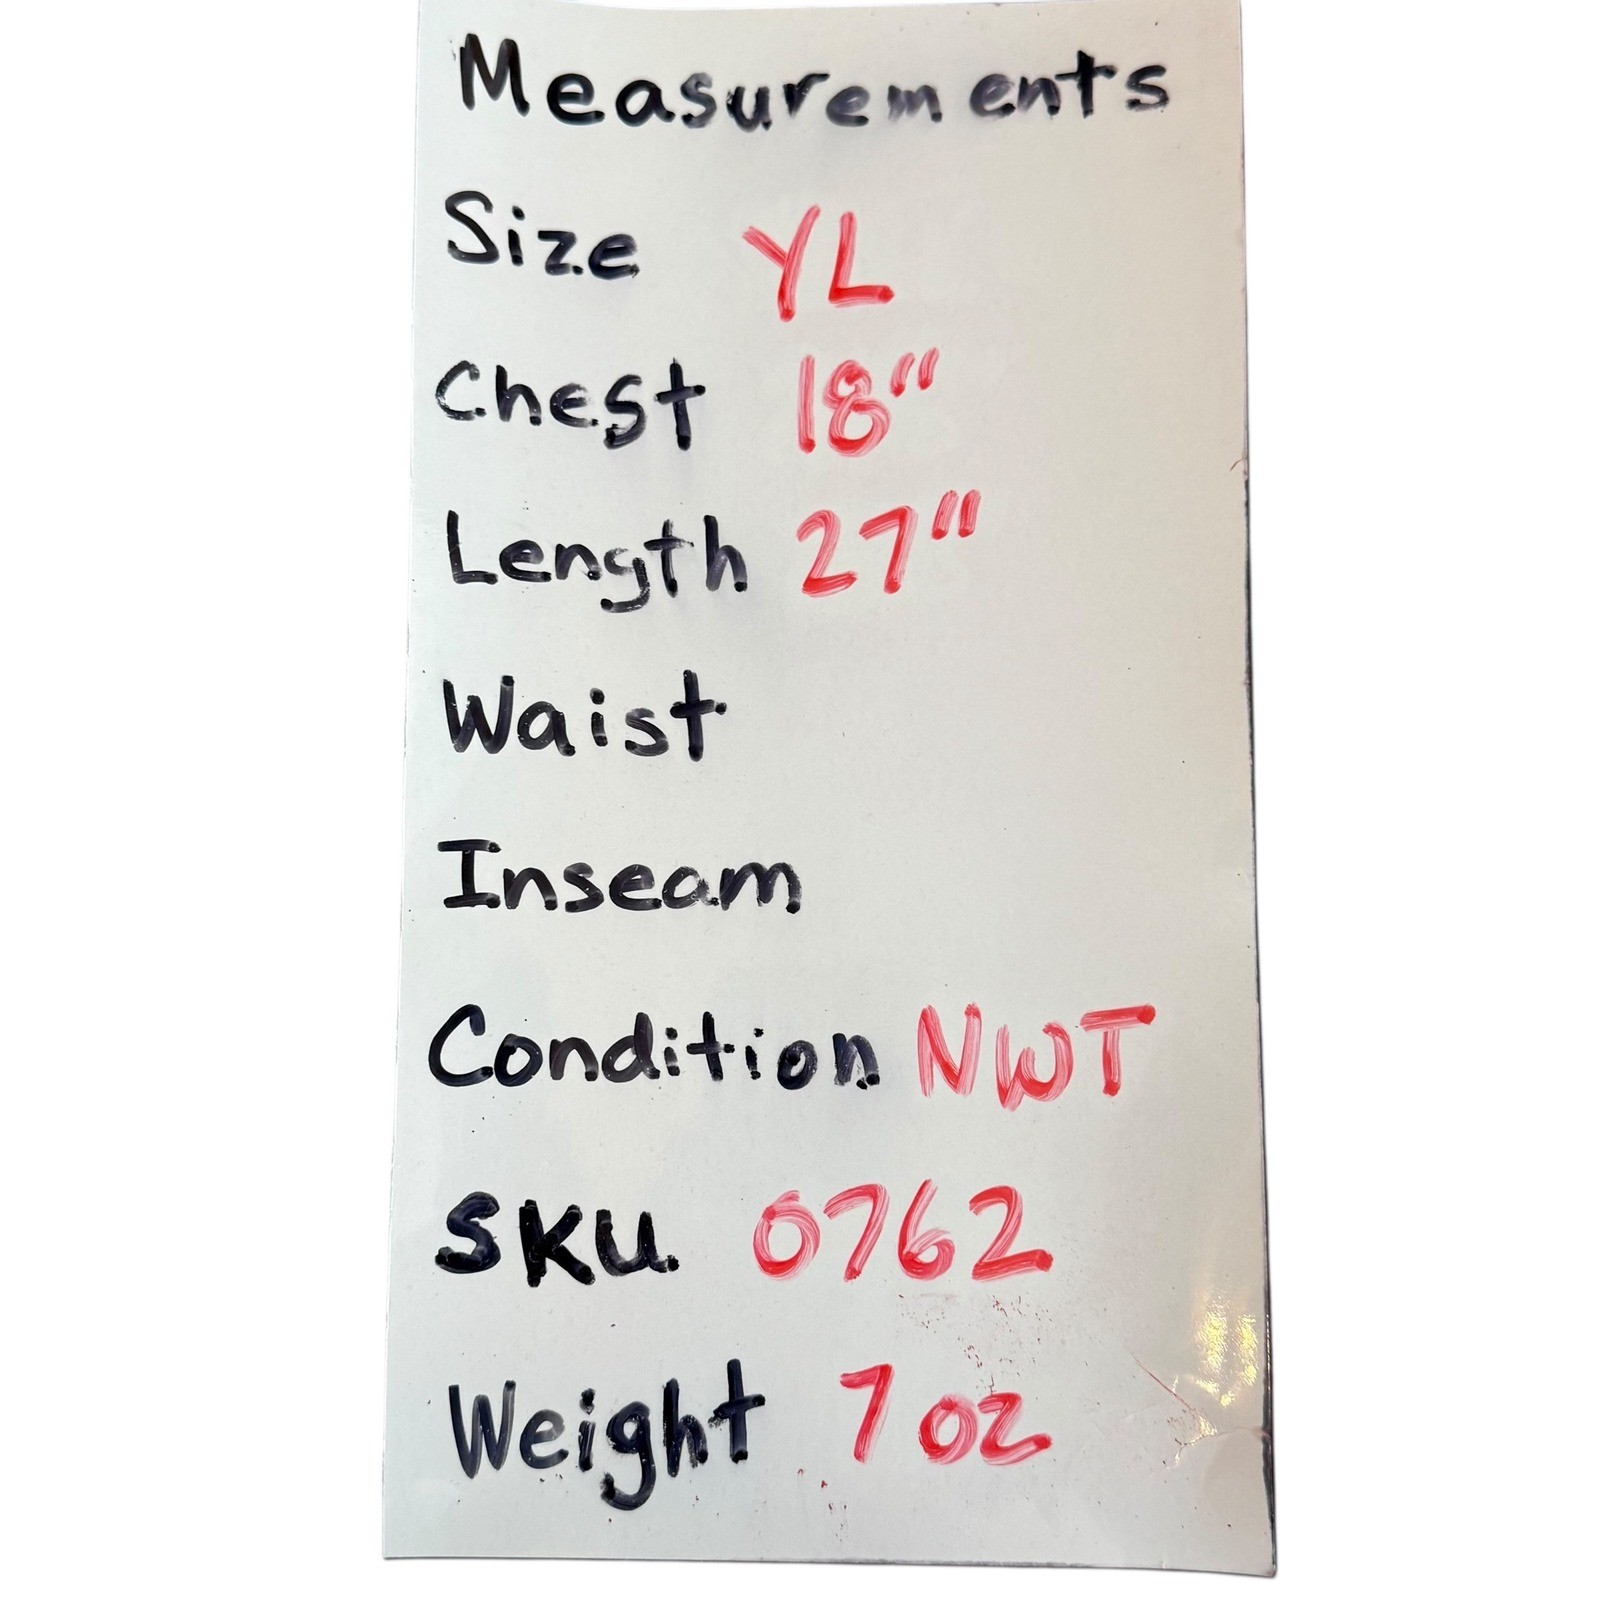 Measurements
Size YL
Chest 18"
Length 27"
Waist
Inseam
Condition NWT
SKU 0762
Weight 7 oz